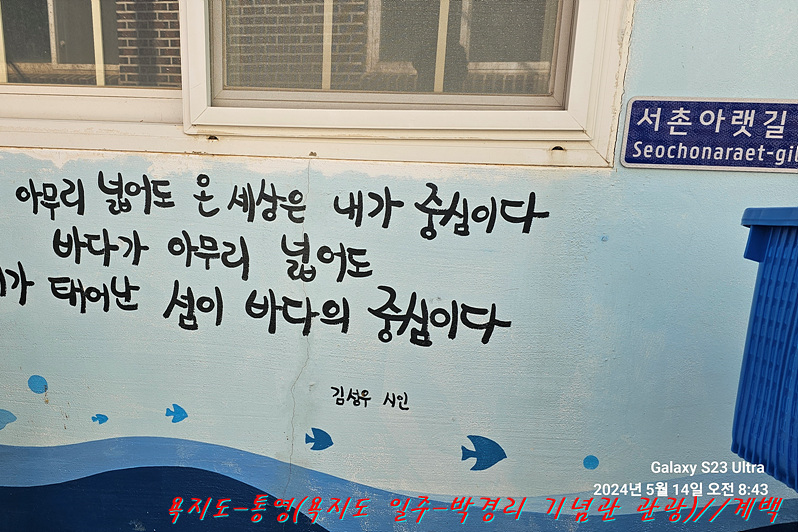 서촌아랫길
Seochonaraet-gil
아무리 넓어도 온 세상은 내가 중심이다
바다가 아무리 넓어도
태어난 섬이 바다의 중심이다
김성우 시인
Galaxy S23 Ultra
2024년 5월 14일 오전 8:43
욕지도-통영(욕지도 일주-박경리 기념관 관광)//계백